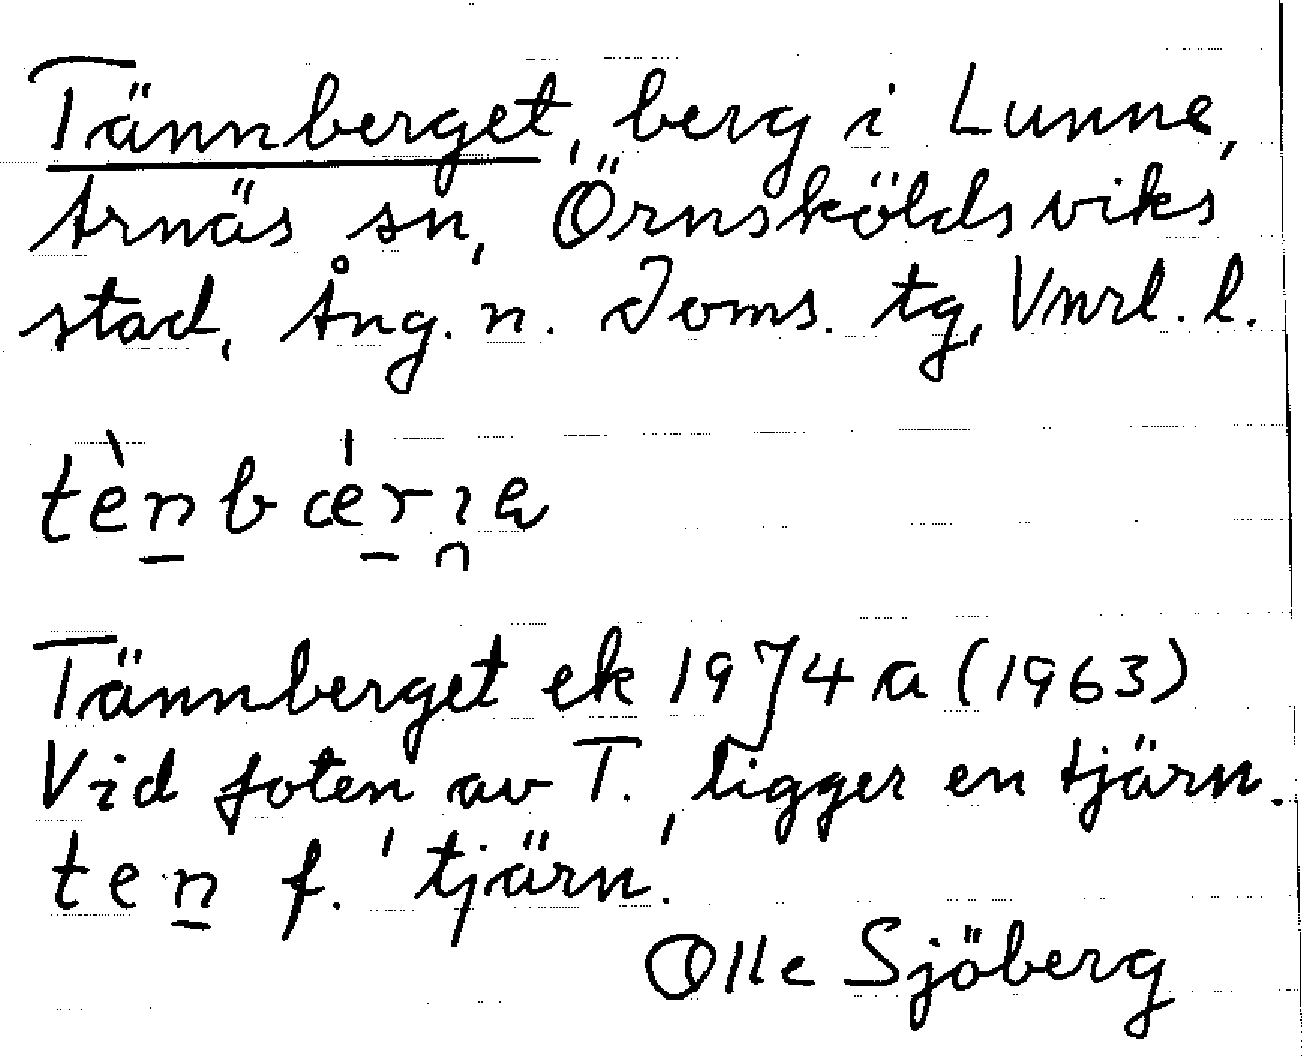 Tännberget, berg i Lunne,
Arnäs sn, Örnsköldsviks
stad, Ång. n. Doms. tg, Vnrl. l.
Tännberget ek 1974 a (1963)
Vid foten av T. ligger en tjärn.
ten f. 'tjärn'.
Olle Sjöberg